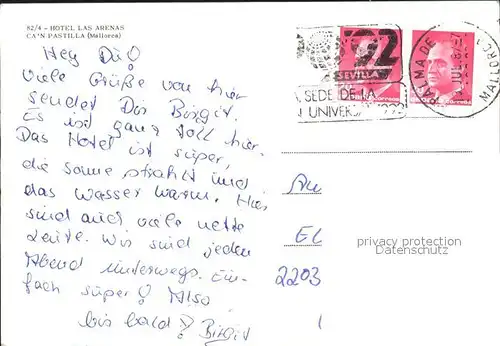 82/4 - HOTEL LAS ARENAS
CA'N PASTILLA (Mallorca)
Hey Du!
Viele Grüße von hier
sendet Dir Birgit.
Es ist ganz toll hier.
Das Hotel ist super,
die Sonne strahlt und
das Wasser warm. Hier
sind auch viele nette
Leute. Wir sind jeden
Abend unterwegs. Ein-
fach super! Also
bis bald! Birgit
92
SEVILLA
SEDE DE LA
UNIVERSAL 1992
PALMA DE MALLORCA
JUL 87
An
EL
2203
privacy protection
Datenschutz